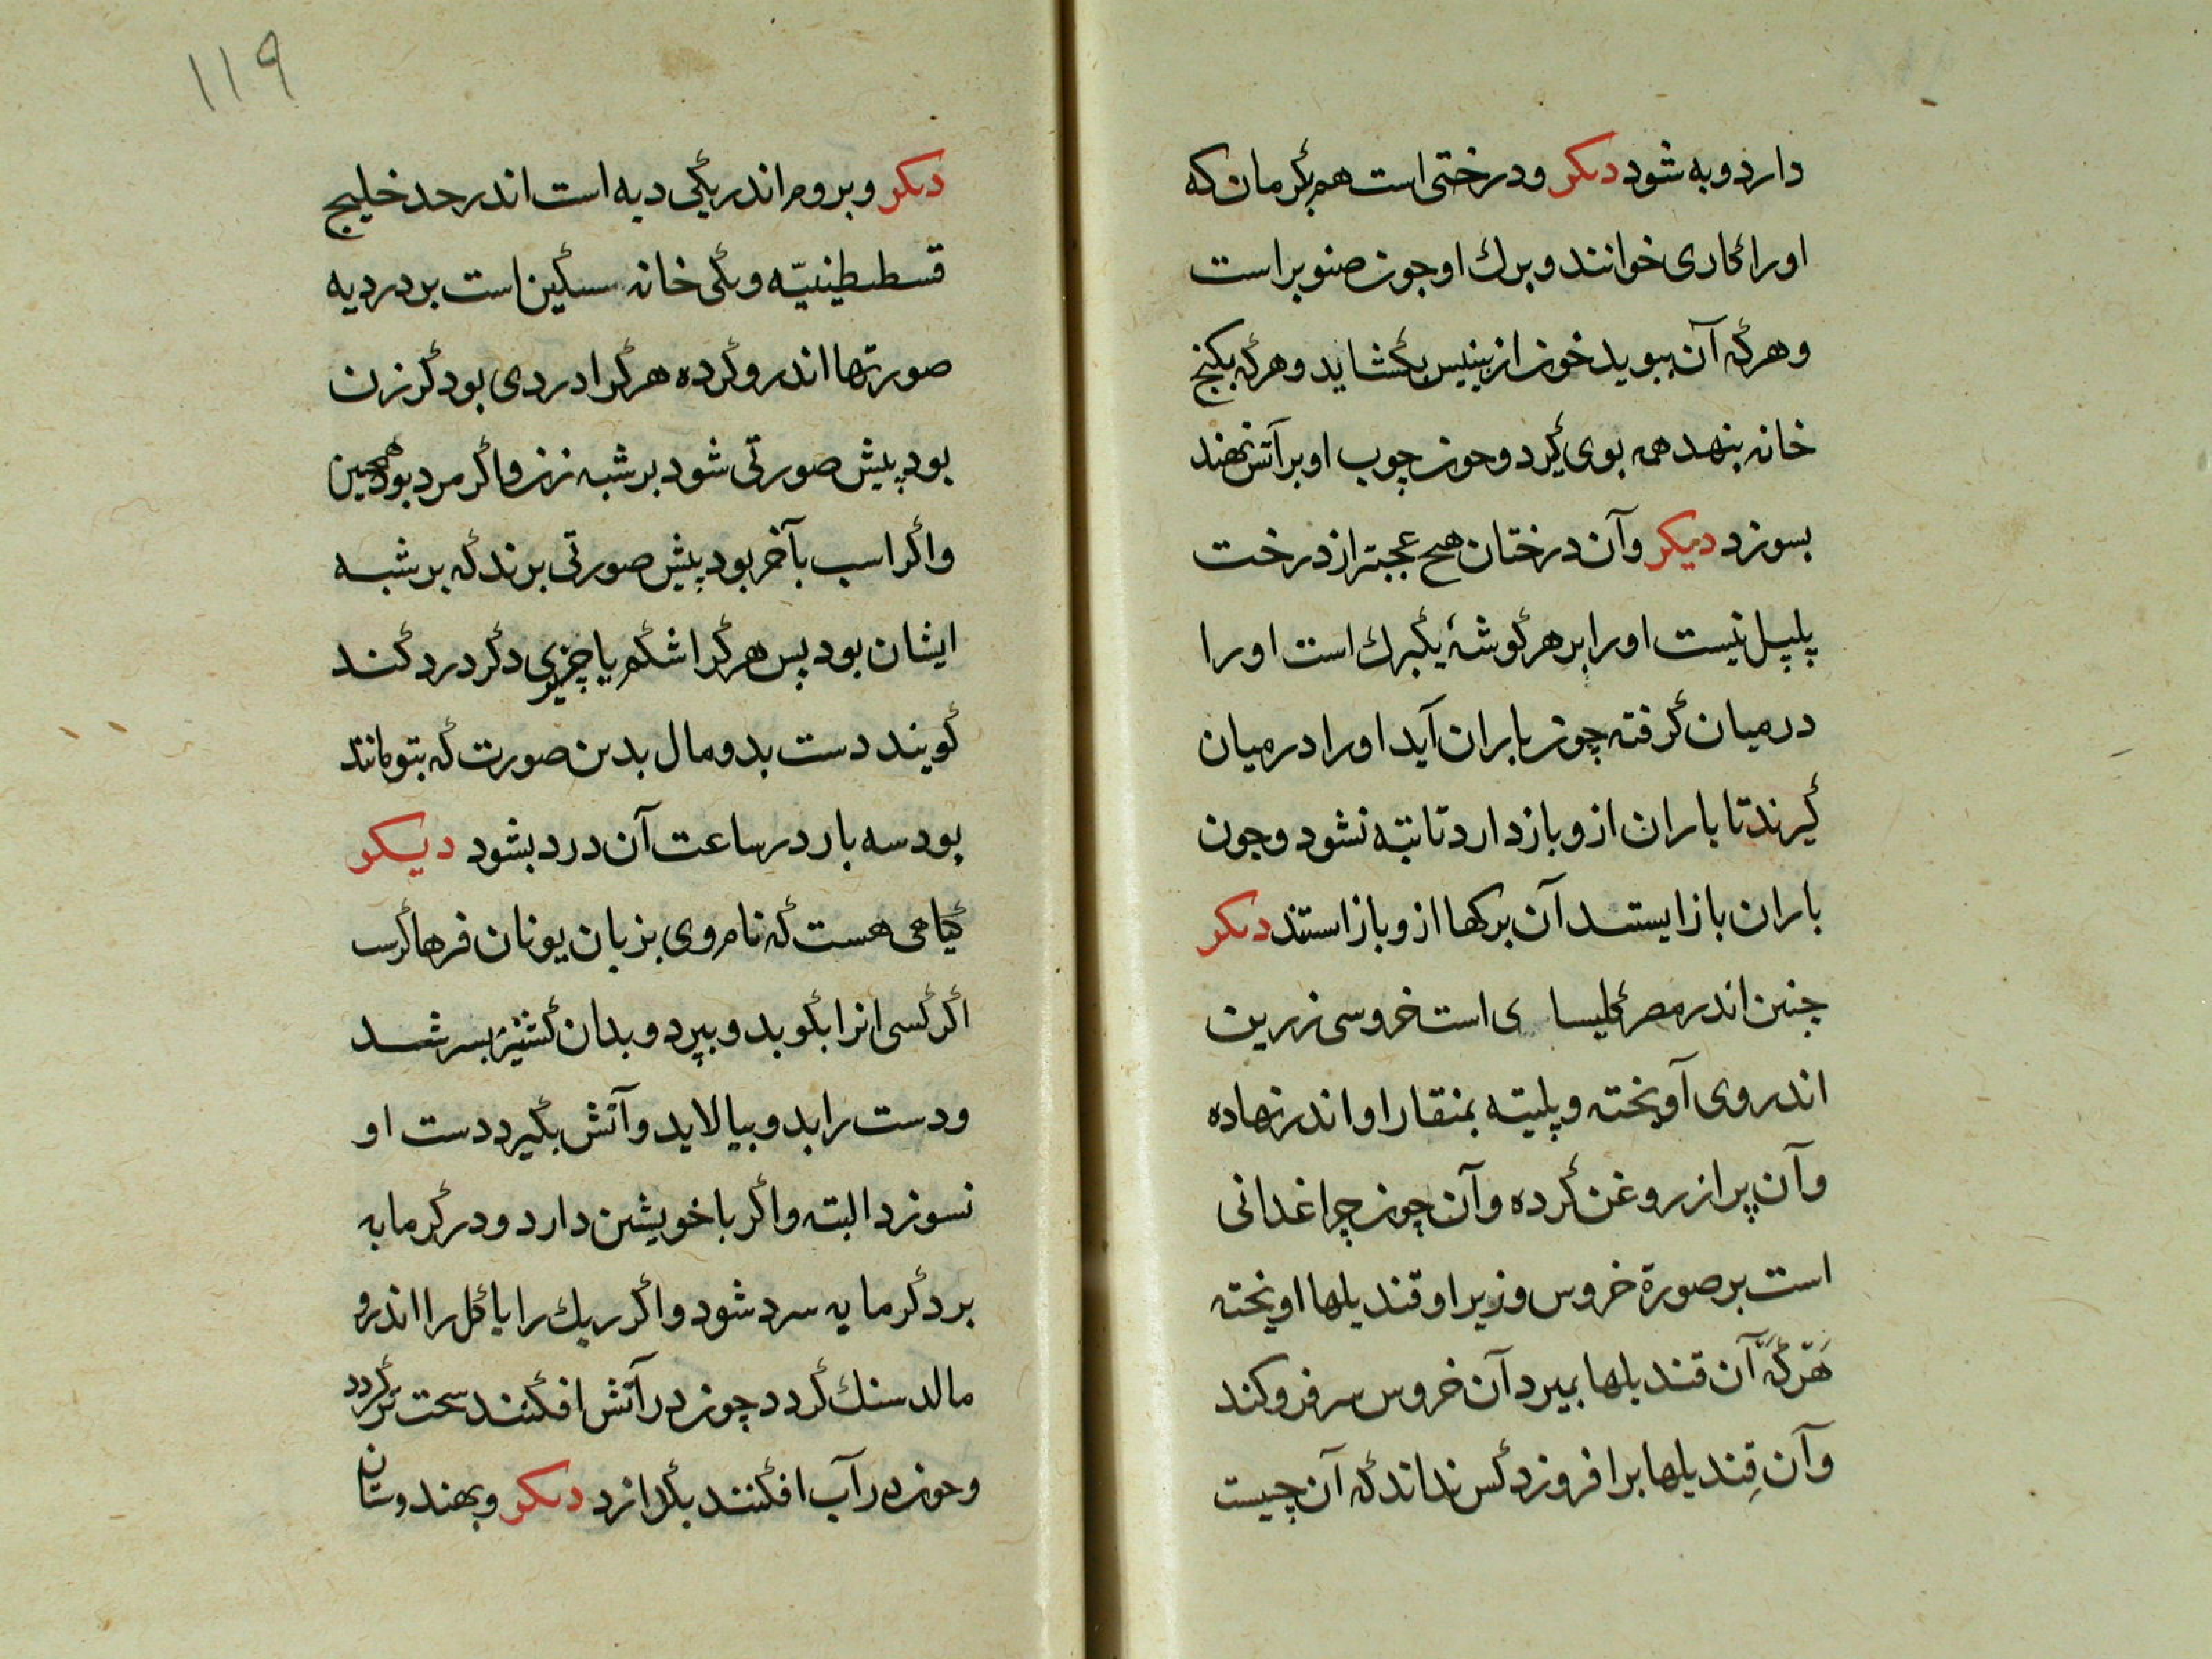 دارد و به شود دیکر و درختی است هم بکرمان که
او را کاری خوانند و برك او چون صنوبر است
و هر که آن ببوید خون از بینیش بکشاید و هر که بکنج
خانه بنهد همه بوی کیرد و چون چوب او بر آتش نهند
بسوزد دیکر و آن درختان هیچ عجبتر از درخت
پلپل نیست او را بر هر کوشهٔ یکبرك است او را
در میان کرفته چون باران آید او را در میان
کیرند تا باران ازو باز دارد تا تبه نشود و چون
باران باز ایستد آن برکها ازو باز استند دیکر
چنین اندر مصر کلیسا ی است خروسی زرین
اندر وی آویخته و پلیته بمنقار او اندر نهاده
و آن پر از روغن کرده و آن چون چراغدانی
است بر صورة خروس و زیر او قندیلها اویخته
هر که آن قندیلها بمیرد آن خروس سر فرو کند
و آن قندیلها بر افروزد کس نداند که آن چیست
۱۱۹
دیکر و بروم اندر یکی دیه است اندر حد خلیج
قسطنطینیّه و یکی خانه سنکین است بر در دیه
صورتها اندرو کرده هر کرا دردی بود کر زن
بود پیش صورتی شود بر شبه زن و اکر مرد بود همچنین
و اکر اسب یا خر بود پیش صورتی برند که بر شبه
ایشان بود پس هر کرا شکم یا چیزی دکر درد کند
کویند دست بدو مال بدین صورت که بتو مانند
بود سه بار در ساعت آن درد بشود دیکر
کیاهی هست که نام وی بزبان یونان فرهاکرس
اکر کسی انرا بکوبد و ببرد و بدان کشنیز بسرشد
و دست را بدو بیالاید و آتش بکیرد دست او
نسوزد البته و اکر با خویشتن دارد و در کرمابه
برد کرمابه سرد شود و اکر ریك را یا کل را اندرو
مالد سنك کردد چون در آتش افکنند سخت تر کردد
و چون در آب افکنند بکدازد دیکر و بهندوستان